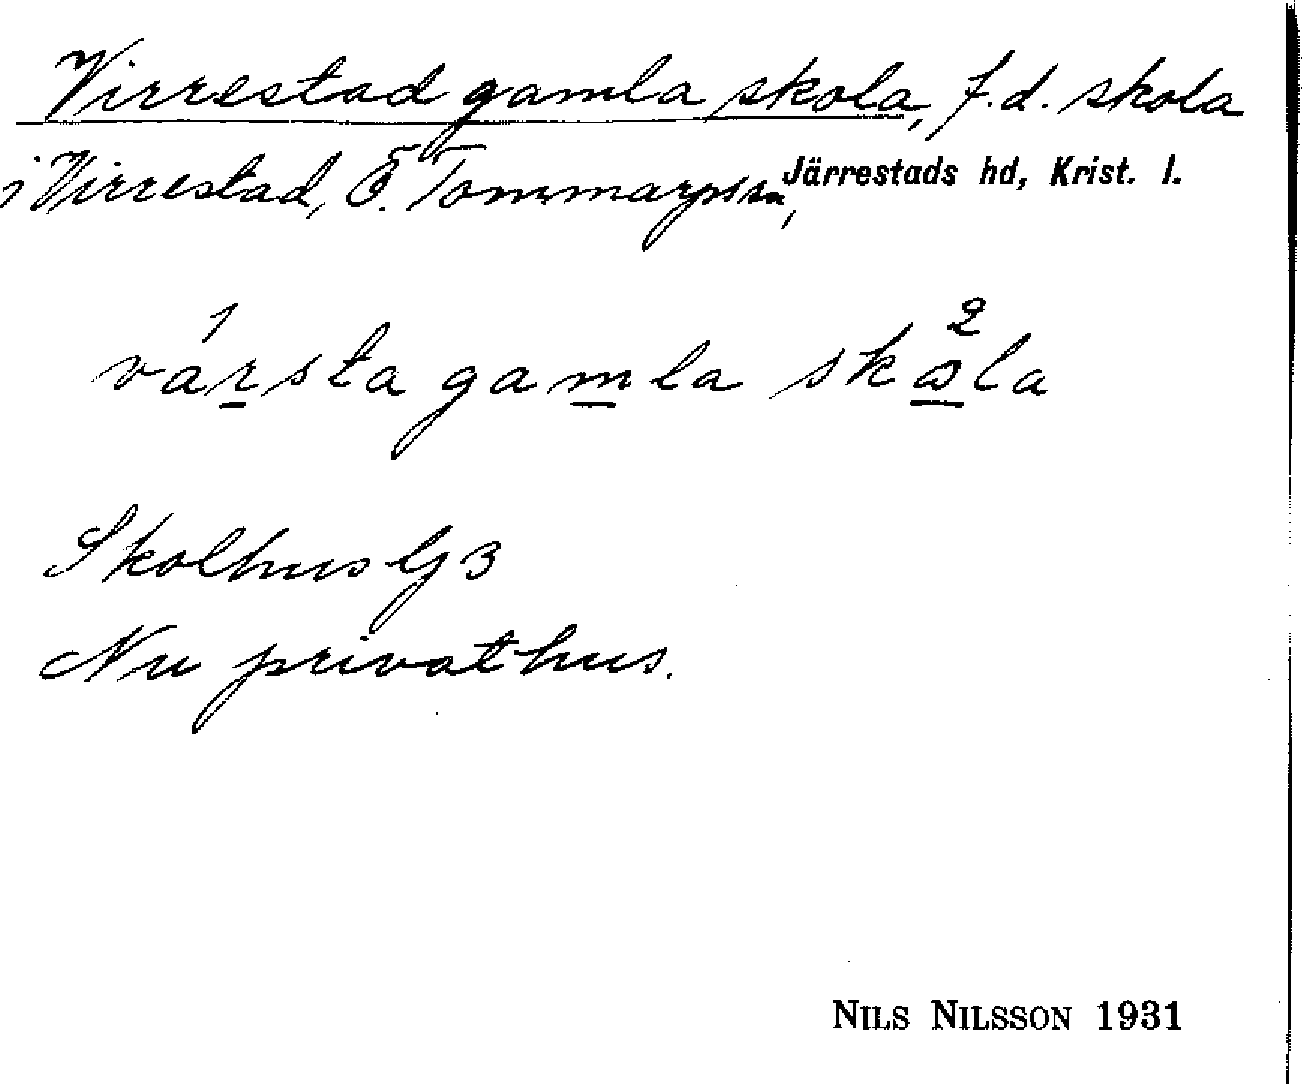 Virrestad gamla skola, f.d. skola
i Virrestad, Ö. Tommarps sn, Järrestads hd, Krist. l.
1 2
varsta gamla skωla
Skolhus G3
Nu privathus.
NILS NILSSON 1931